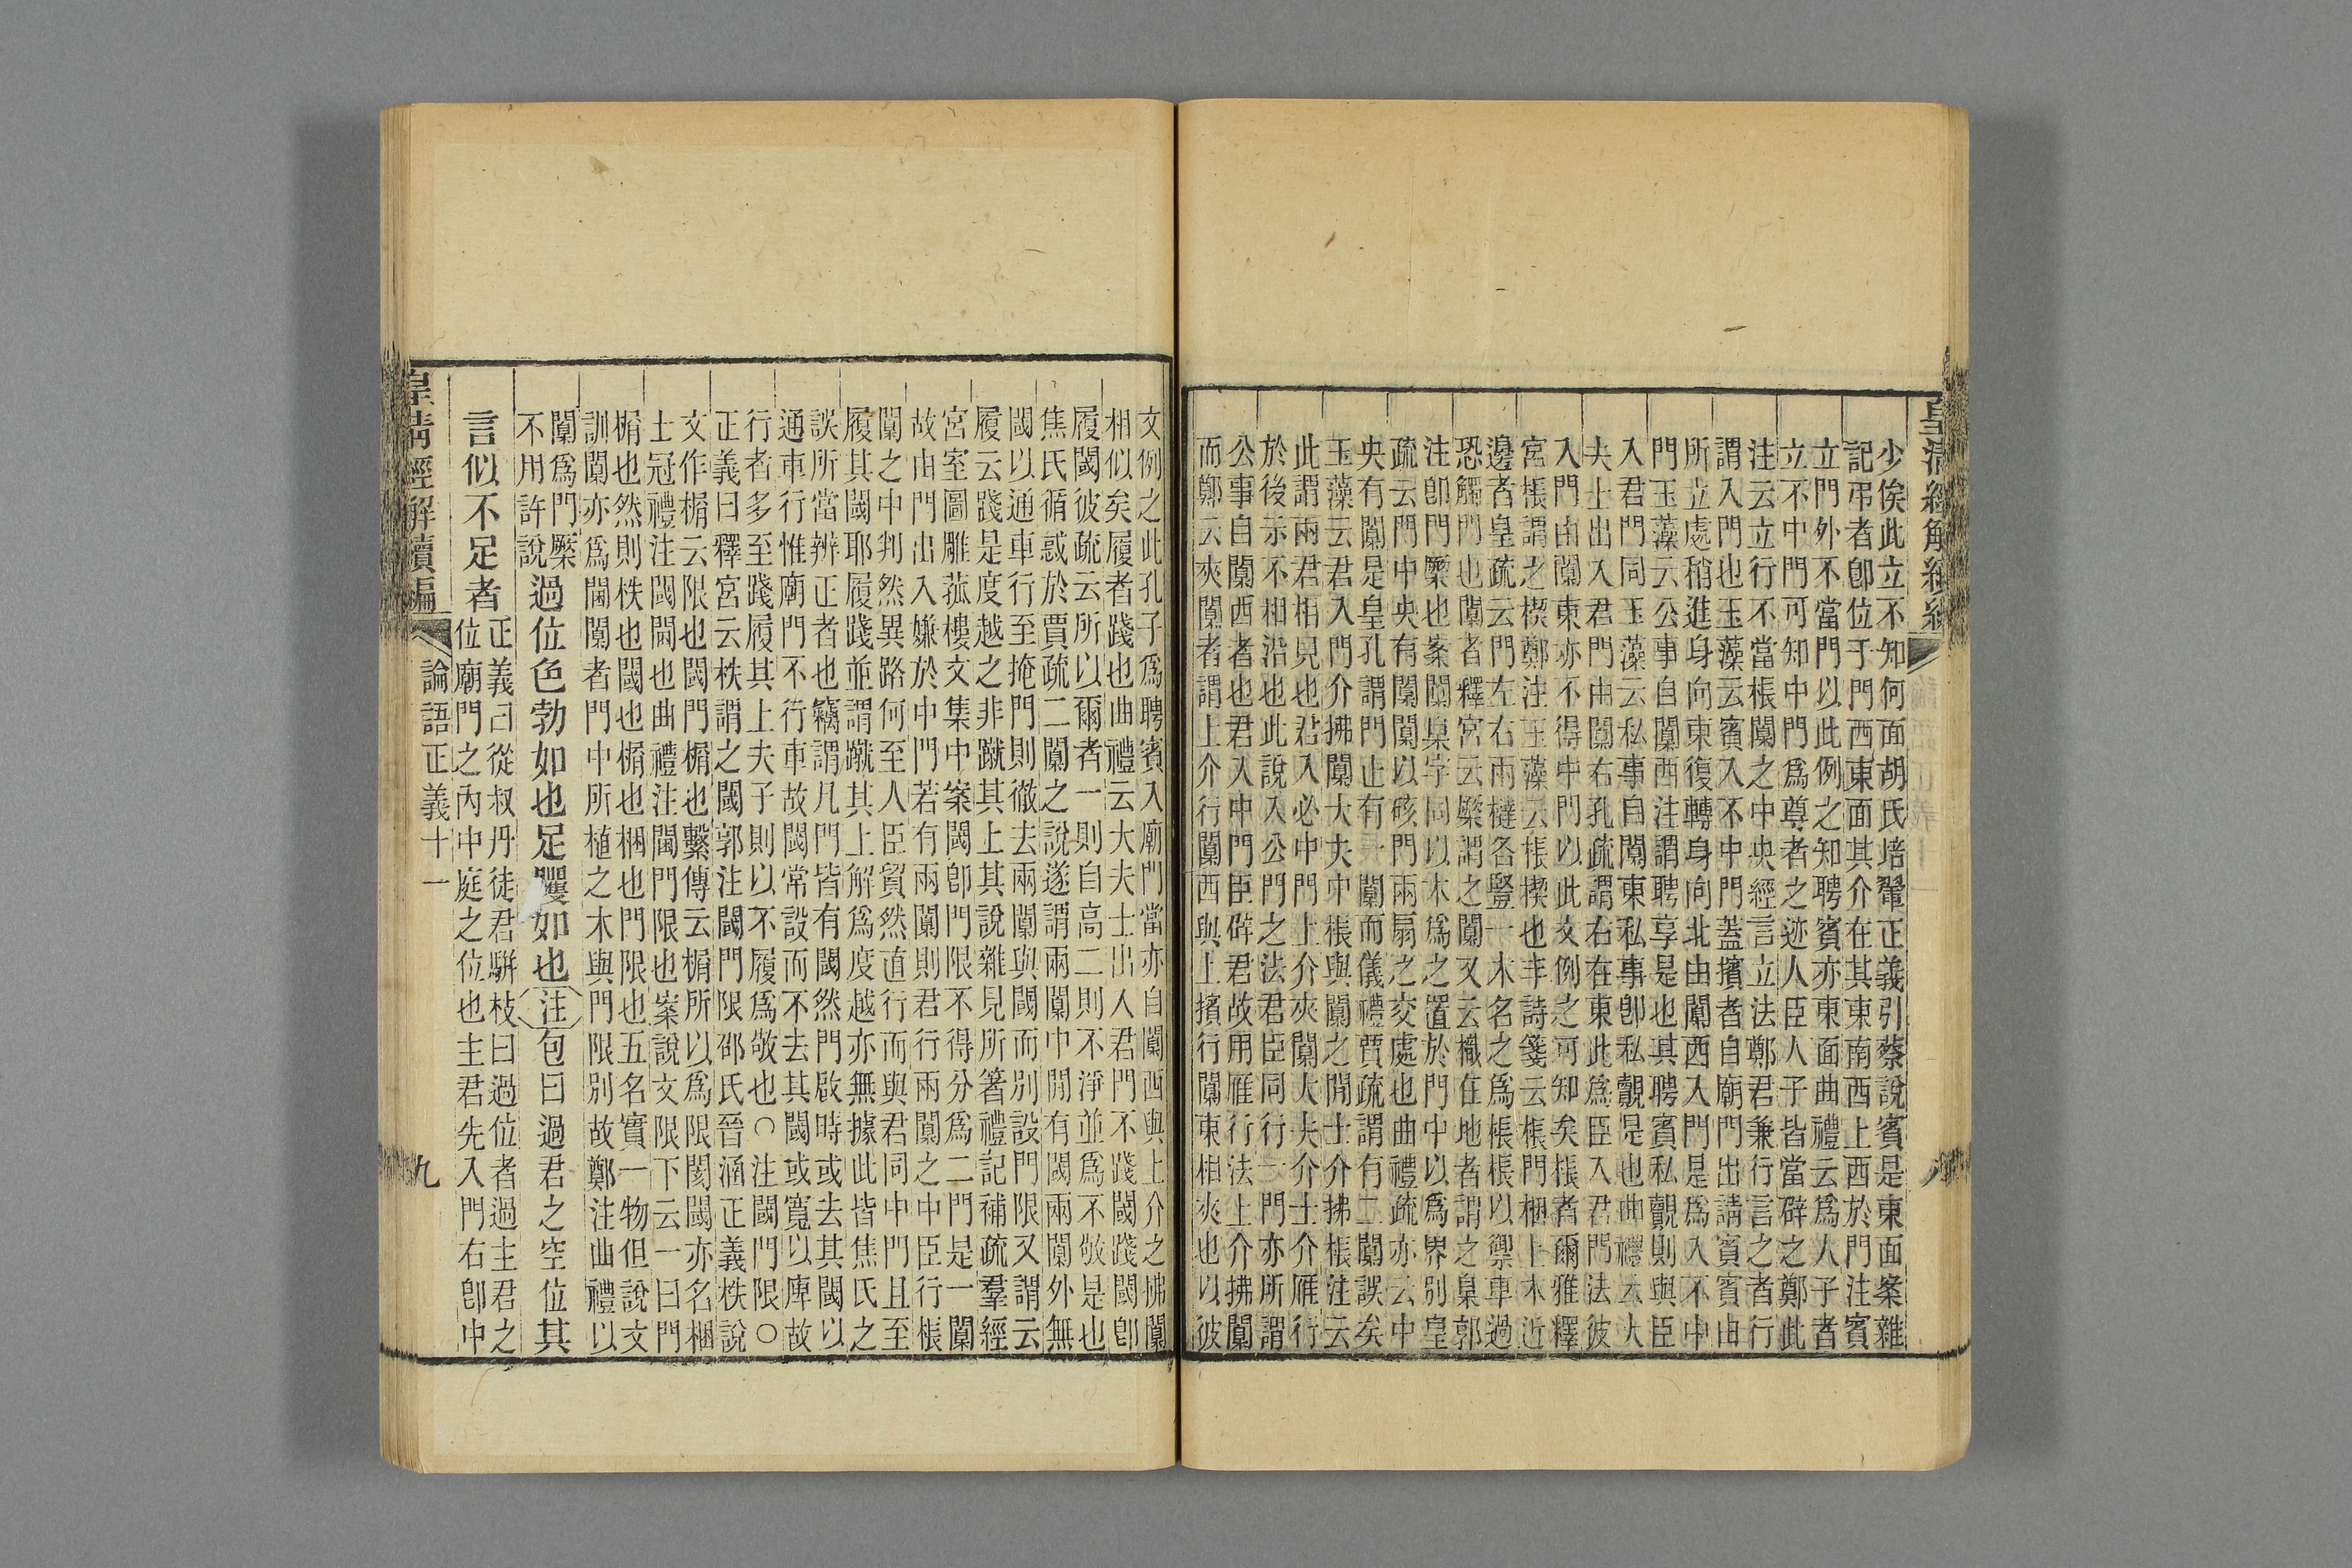 少俟此立不知何面胡氏培翬正義引蔡說賓是東面案雜
記弔者卽位于門西東面其介在其東南西上西於門注賓
立門外不當門以此例之知聘賓亦東面曲禮云爲人子者
立不中門可知中門爲尊者之迹人臣人子皆當辟之鄭此
注云立行不當棖闑之中央經言立法鄭君兼行言之者行
謂入門也玉藻云賓入不中門蓋擯者自廟門出請賓賓由
所立處稍進身向東復轉身向北由闑西入門是爲入不中
門玉藻云公事自闑西注謂聘享是也其聘賓私覿則與臣
入君門同玉藻云私事自闑東私事卽私覿是也曲禮云大
夫士出入君門由闑右孔疏謂右在東此爲臣入君門法彼
入門由闑東亦不得中門以此文例之可知矣棖者爾雅釋
宮棖謂之楔鄭注玉藻云棖楔也非詩箋云棖門梱上木近
邊者皇疏云門左右兩橽各豎一木名之爲棖棖以禦車過
恐觸門也闑者釋宮云橜謂之闑又云樴在地者謂之臬郭
注卽門橜也案闑臬字同以木爲之置於門中以爲界別皇
疏云門中央有闑闑以硋門兩扇之交處也曲禮疏亦云中
央有闑是皇孔謂門止有一闑而儀禮賈疏謂有二闑誤矣
玉藻云君入門介拂闑大夫中棖與闑之閒士介拂棖注云
此謂兩君相見也君入必中門上介夾闑大夫介士介雁行
於後示不相沿也此說入公門之法君臣同行一門亦所謂
公事自闑西者也君入中門臣辟君故用雁行法上介拂闑
而鄭云夾闑者謂上介行闑西與上擯行闑東相夾也以彼
皇清經解續編
八
文例之此孔子爲聘賓入廟門當亦自闑西與上介之拂闑
相似矣履者踐也曲禮云大夫士出入君門不踐閾踐閾卽
履閾彼疏云所以爾者一則自高二則不淨並爲不敬是也
焦氏循惑於賈疏二闑之說遂謂兩闑中閒有閾兩闑外無
閾以通車行至掩門則徹去兩闑與閾而別設門限又謂云
履云踐是度越之非蹴其上其說雜見所箸禮記補疏羣經
宮室圖雕菰樓文集中案閾卽門限不得分爲二門是一闑
故由門出入嫌於中門若有兩闑則君行兩闑之中臣行棖
闑之中判然異路何至人臣賓然直行而與君同中門且至
履其閾耶履踐並謂蹴其上解爲度越亦無據此皆焦氏之
誤所當辨正者也竊謂凡門皆有閾然門啟時或去其閾以
通車行惟廟門不行車故閾常設而不去其閾或寬以庳故
行者多至踐履其上夫子則以不履爲敬也○注閾門限○
正義曰釋宮云柣謂之閾郭注閾門限邵氏晉涵正義柣說
文作榍云限也閾門榍也繫傳云榍所以爲限閡閾亦名梱
士冠禮注閾閫也曲禮注閫門限也案說文限下云一曰門
榍也然則柣也閾也榍也梱也門限也五名實一物但說文
訓闑亦爲閫闑者門中所植之木與門限別故鄭注曲禮以
闑爲門橜
不用許說
過位色勃如也足躩如也注包曰過君之空位其
言似不足者正義曰從叔丹徒君騈枝曰過位者過主君之
位廟門之內中庭之位也主君先入門右卽中
皇清經解續編
論語正義十一
九